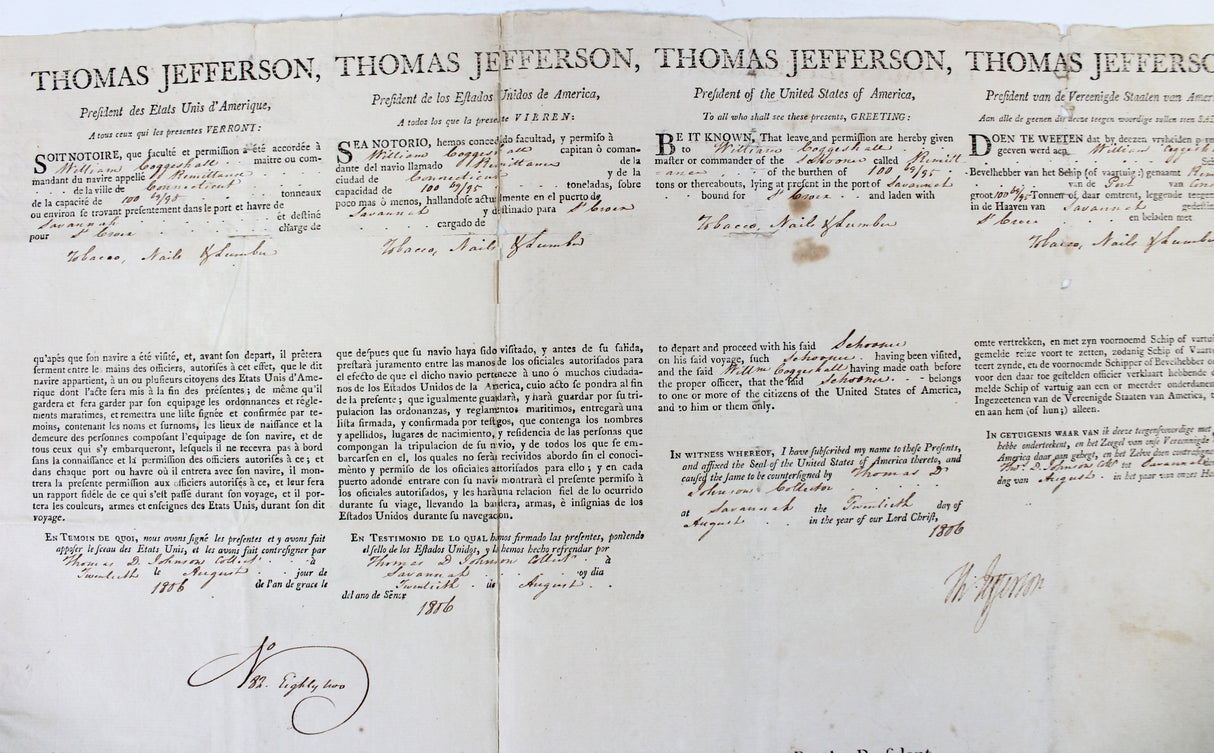 THOMAS JEFFERSON,
President des Etats Unis d'Amerique,
A tous ceux qui les presentes VERRONT:
SOIT NOTOIRE, que faculté et permission a été accordée à
William Coggeshall maitre ou com-
mandant du navire appellé Remittance
de la ville de Connecticut
de la capacité de 100 62/95 tonneaux
ou environ se trovant presentement dans le port et havre de
Savannah et destiné
pour St Croix charge de
Tobacco, Nails & Lumber
qu'apès que son navire a été visité, et, avant son depart, il prêtera
serment entre les mains des officiers, autorisés à cet effet, que le dit
navire appartient, à un ou plusieurs citoyens des Etats Unis d'Ame-
rique dont l'acte sera mis à la fin des présentes; de même qu'il
gardera et fera garder par son equipage les ordonnances et régle-
ments maratimes, et remettra une liste signée et confirmée par te-
moins, contenant les noms et surnoms, les lieux de naissance et la
demeure des personnes composant l'equipage de son navire, et de
tous ceux qui s'y embarqueront, lesquels il ne recevra pas à bord
sans la connaissance et la permission des officiers autorisés à ce; et
dans chaque port ou havre où il entrera avec son navire, il mon-
trera la presente permission aux officiers autorisés à ce, et leur fera
un rapport fidéle de ce qui s'est passé durant son voyage, et il por-
tera les couleurs, armes et enseignes des Etats Unis, durant son dit
voyage.
EN TEMOIN DE QUOI, nous avons signé les presentes et y avons fait
apposer le sceau des Etats Unis, et les avons fait contresigner par
Thomas D. Johnson Collect. à
Twentieth le August jour de
1806 de l'an de grace le
No 82. Eighty two
THOMAS JEFFERSON,
President de los Estados Unidos de America,
A todos los que la presente VIEREN:
SEA NOTORIO, hemos concedido facultad, y permiso à
William Coggeshall capitan ó coman-
dante del navio llamado Remittance de la
ciudad de Connecticut y de la
capacidad de 100 62/95 toneladas, sobre
poco mas ò menos, hallandose actualmente en el puerto de
Savannah y destinado para St Croix
cargado de
Tobacco, Nails & Lumber
que despues que su navio haya sido visitado, y antes de su salida,
prestará juramento entre las manos de los oficiales autorisados para
el efecto de que el dicho navio pertenece à uno ó muchos ciudada-
nos de los Estados Unidos de la America, cuio acto se pondra al fin
de la presente; que igualmente guadará, y hará guardar por su tri-
pulacion las ordonanzas, y reglamentos maritimos, entregará una
lista firmada, y confirmada por testigos, que contenga los nombres
y apellidos, lugares de nacimiento, y residencia de las personas que
compongan la tripulacion de su navio, y de todos los que se em-
barcarsen en el, los quales no serán recividos abordo sin el conoci-
mento y permiso de los oficiales autorisados para ello; y en cada
puerto adonde entrare con su navio montrará el presente permiso à
los oficiales autorisados, y les hará una relacion fiel de lo ocurrido
durante su viage, llevando la bandera, armas, è insignias de los
Estados Unidos durante su navegacion.
EN TESTIMONIO DE LO QUAL hemos firmado las presentes, poniendo
el sello de los Estados Unidos, y la hemos hecho refrendar por
Thomas D Johnson Collect. à
Savannah oy dia
Twentieth de August
del ano de Sènor
1806
THOMAS JEFFERSON,
President of the United States of America,
To all who shall see these presents, GREETING:
BE IT KNOWN, That leave and permission are hereby given
to William Coggeshall
master or commander of the Schooner called Remitt
ance of the burthen of 100 62/95
tons or thereabouts, lying at present in the port of Savannah
bound for St Croix and laden with
Tobacco, Nails & Lumber
to depart and proceed with his said Schooner
on his said voyage, such Schooner having been visited,
and the said Willm Coggeshall having made oath before
the proper officer, that the said Schooner belongs
to one or more of the citizens of the United States of America,
and to him or them only.
IN WITNESS WHEREOF, I have subscribed my name to these Presents,
and affixed the Seal of the United States of America thereto, and
caused the same to be countersigned by Thomas D
Johnson Collector
at Savannah the Twentieth day of
August in the year of our Lord Christ,
1806
Th: Jefferson
THOMAS JEFFERSO
President van de Vereenigde Staaten van Ameri
Aan alle de geenen die deeze teegen woordige sullen sien SAL
DOEN TE WEETEN dat by deezen vryheiden p
geeven werd aen William Coggesh
Sch
Bevelhebber van het Schip (of vaartuig:) genaamt Rem
van de Port van Conn
groot 100 62/95 Tonnen of daar omtrent, leggende tegen
in de Haaven van Savannah gedestin
St Croix en beladen met
Tobacco, Nails & Lumber
omte vertrekken, en met zyn voornoemd Schip of vartui
gemelde reize voort te zetten, zodanig Schip of Vaart
teert zynde, en de voornoemde Schipper of Bevelhebber
voor den daar toe gestelden officier verklaart hebbende
melde Schip of vartuig aan een or meerder onderdanen
Ingezeetenen van de Vereenigde Staaten van America, t
en aan hem (of hun;) alleen.
IN GETUIGENIS WAAR VAN ik deeze tegensworodige met
hebbe onderteekent, en het Zeegel van onse Vereenigde
America daar aan gehegt, en het Zelve doen contrasign
Thos. D. Johnson Collr tot Savannah
dag van August in het jaar van onze H